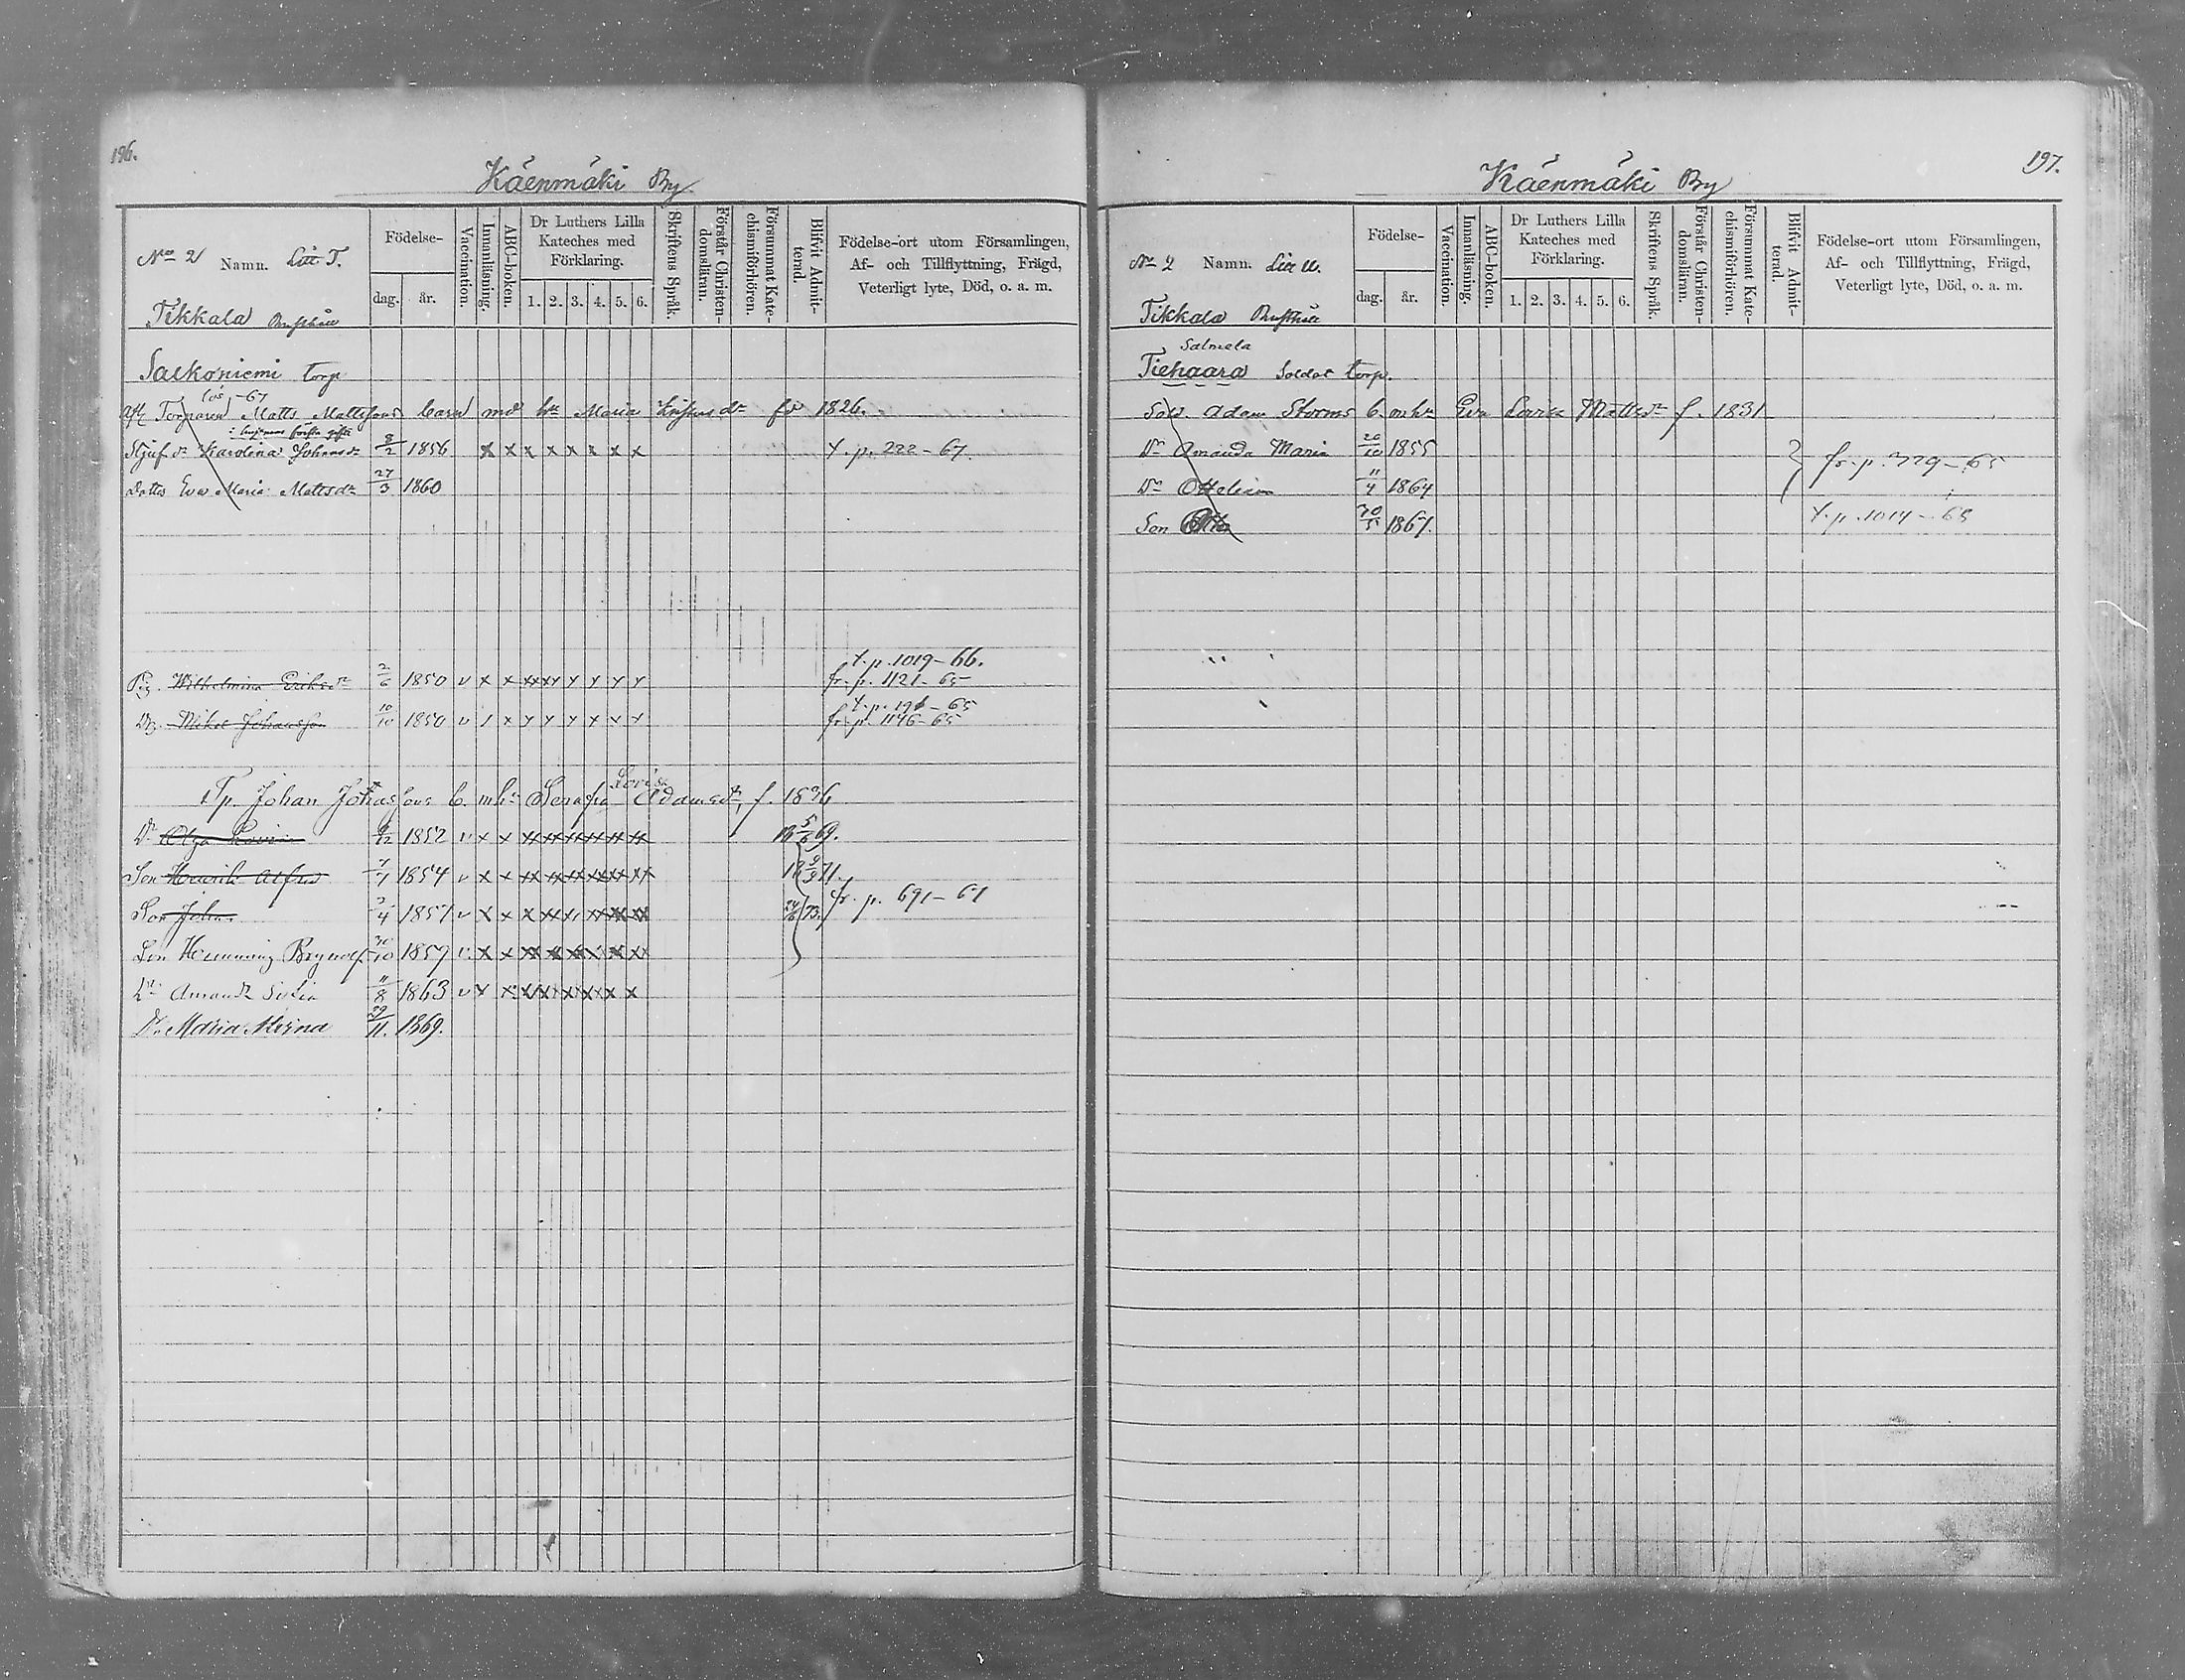 196.
Käenmäki By
No 2 Namn. Litt T.
Tikkala Rusthåll
Födelse-
dag. år.
Vaccination.
Innanläsning.
ABC-boken.
Dr Luthers Lilla
Kateches med
Förklaring.
1. 2. 3. 4. 5. 6.
Skriftens Språk.
Förstår Christen-
domsläran.
Försummat Kate-
chismiförhören.
Blifvit Admit-
terad.
Födelse-ort utom Församlingen,
Af- och Tillflyttning, Frägd,
Veterligt lyte, Död, o. a. m.
Salkoniemi torp
-67
Torparen Matts Mattssons barn med hu Maria fö 1826.
Karolina Johansdr 8/2 1856 x x x x x x x x t. p. 222-67
Eva Maria Mattsdr 27/3 1860
t. p. 1019-66.
Pig. Wilhelmina Eriksdr 2/6 1850 v x x xx xx y y y y fr. p. 1121-65
t. p. 196-65
Dr. Mikel Johansson 10/10 1850 v / x y y y x v y fr. p. 1146-65
Lovisa
Tp. Johan Johanssons b. m hu Serafia Adamsdr, f. 1836
Dr Olga Lovisa 1852 v x x xx xx xx xx xx xx 18 5/6 69.
Son Henrik Alfred 1854 v x x xx xx xx xx xx xx 71.
Son Johan 1857 v x x x xx xx xx xx xx 73. fr. p. 691-67
Son Hemming Brynolf 30/10 1859 v x x xx xx xx xx xx xx
Dr Amanda Sofia 11/8 1863 v x x xx xx xx xx x x
Dr Maria Mirna 29/11. 1869.
197.
Käenmäki By
No 2 Namn. Litt U.
Tikkala Rusthåll
Födelse-
dag. år.
Vaccination.
Innanläsning.
ABC-boken.
Dr Luthers Lilla
Kateches med
Förklaring.
1. 2. 3. 4. 5. 6.
Skriftens Språk.
Förstår Christen-
domsläran.
Försummat Kate-
chismiförhören.
Blifvit Admit-
terad.
Födelse-ort utom Församlingen,
Af- och Tillflyttning, Frägd,
Veterligt lyte, Död, o. a. m.
Salmela
Tiehaara Soldat torp.
Sold. Adam Storms b. m hu Eva Lovisa Mattsdr f. 1831
Dr Amanda Maria 20/10 1855
fr. p. 329-65
Dr Ottelina 11/4 1864
Son Otto 30/5 1867. t. p. 1014-68